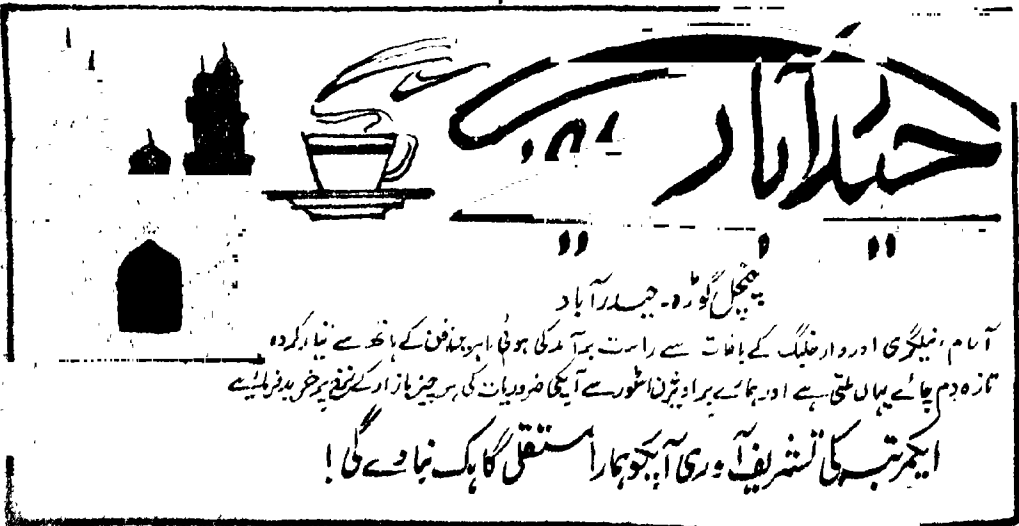 حیدرآباد
چنچل گوڑہ۔ حیدرآباد
آسام، نیلگری اور دارجلینگ کے باغات سے راست برآمد کی ہوئی ماہرین فن کے ہاتھ سے تیار کردہ
تازہ دم چائے یہاں ملتی ہے اور ہمارے پراویژن اسٹور سے آپکی ضروریات کی ہر چیز بازار کے نرخ پر خرید فرمائیے
ایکمرتبہ کی تشریف آوری آپکو ہمارا مستقل گاہک بنا دے گی !